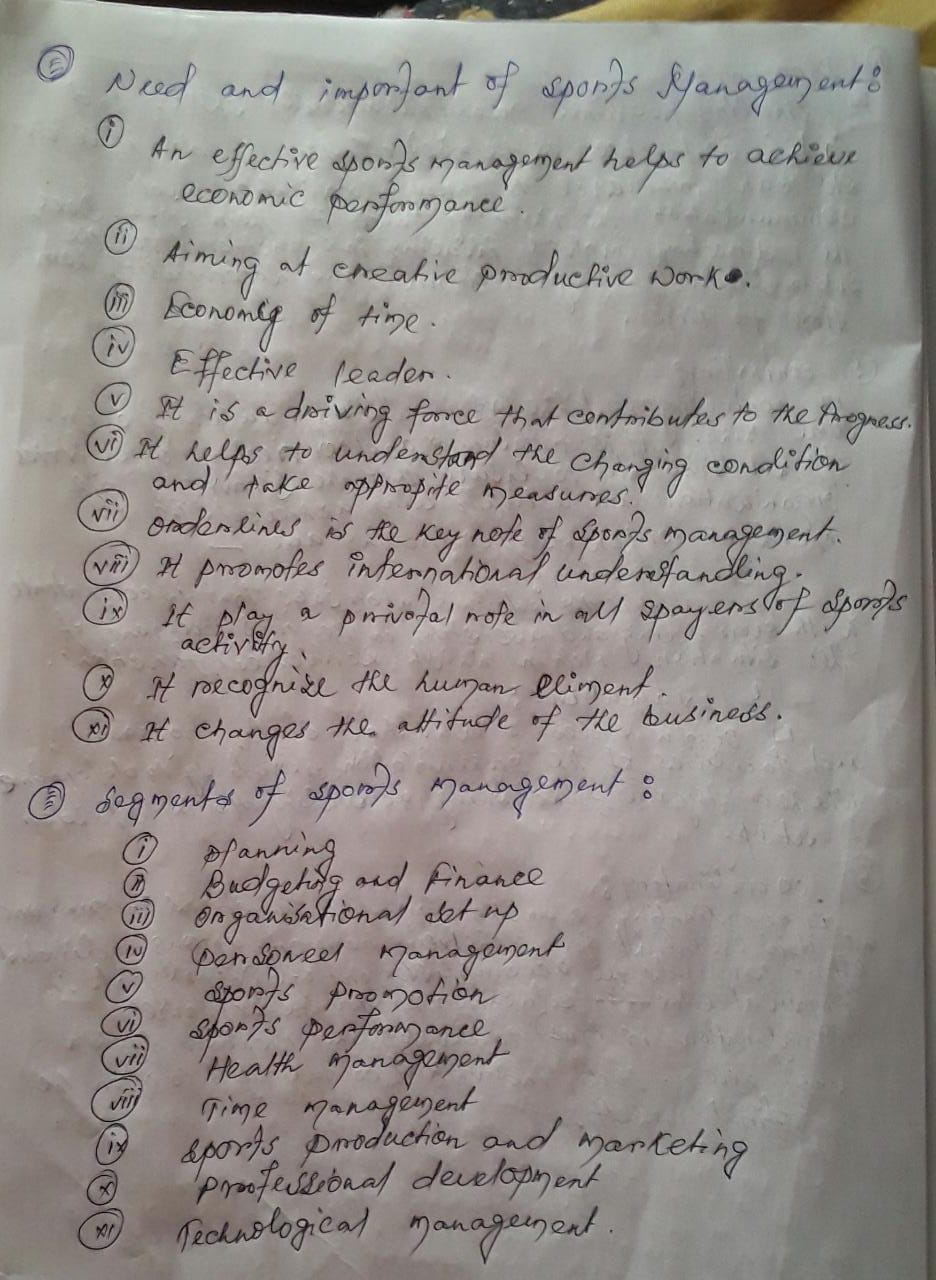 Need and important of sports Management:
i An effective sports management helps to achieve
economic performance.
ii Aiming at creative productive work.
iii Economy of time.
iv Effective leader.
v It is a driving force that contributes to the Progress.
vi It helps to understand the changing condition
and take appropite measures.
vii orderlines is the key note of sports management.
viii It promotes international understanding.
ix It play a privotal role in all spayers of sports
activity.
x It recognize the human eliment.
xi It changes the attitude of the business.
Segments of sports management:
i planning
ii Budgeting and finance
iii organisational set up
iv personeel management
v sports promotion
vi sports performance
vii Health management
viii Time management
ix sports production and marketing
x professional development
xi Technological management.